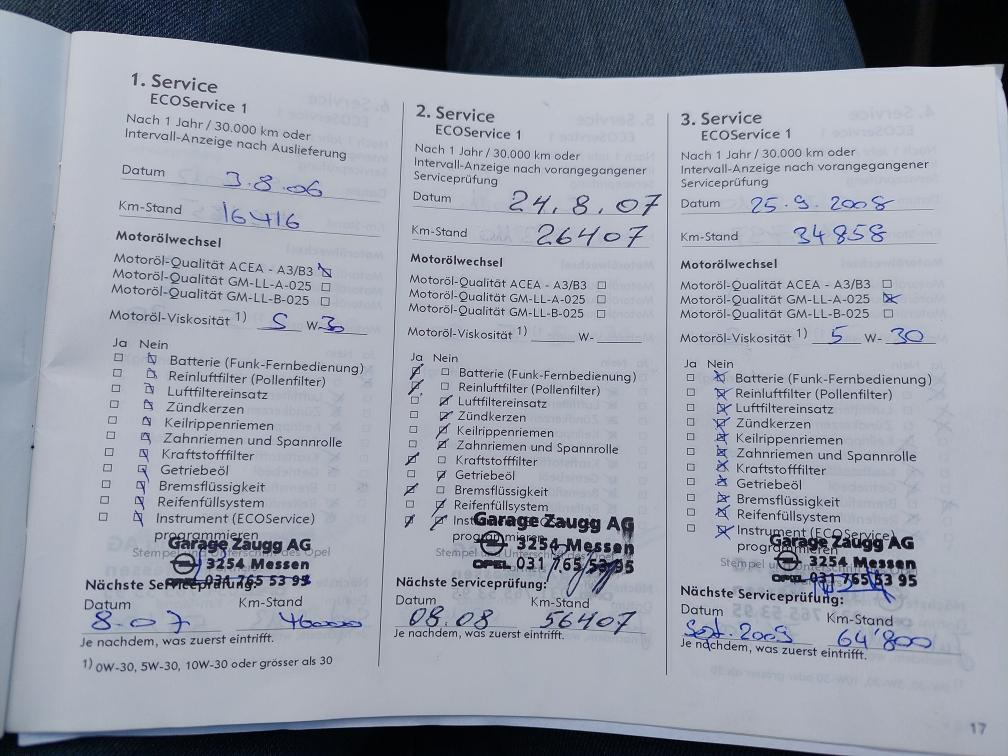 1. Service
ECOService 1
Nach 1 Jahr / 30.000 km oder
Intervall-Anzeige nach Auslieferung
Datum 3.8.06
Km-Stand 16416
Motorölwechsel
Motoröl-Qualität ACEA - A3/B3
Motoröl-Qualität GM-LL-A-025
Motoröl-Qualität GM-LL-B-025
Motoröl-Viskosität 1) 5 W-30
Ja Nein
Batterie (Funk-Fernbedienung)
Reinluftfilter (Pollenfilter)
Luftfiltereinsatz
Zündkerzen
Keilrippenriemen
Zahnriemen und Spannrolle
Kraftstofffilter
Getriebeöl
Bremsflüssigkeit
Reifenfüllsystem
Instrument (ECOService)
programmieren
Garage Zaugg AG
Stempel und Unterschrift des Opel
3254 Messen
OPEL 031 765 53 95
Nächste Serviceprüfung:
Datum Km-Stand
8-07 46000
Je nachdem, was zuerst eintrifft.
1) 0W-30, 5W-30, 10W-30 oder grösser als 30
2. Service
ECOService 1
Nach 1 Jahr / 30.000 km oder
Intervall-Anzeige nach vorangegangener
Serviceprüfung
Datum 24.8.07
Km-Stand 26407
Motorölwechsel
Motoröl-Qualität ACEA - A3/B3
Motoröl-Qualität GM-LL-A-025
Motoröl-Qualität GM-LL-B-025
Motoröl-Viskosität 1) W-
Ja Nein
Batterie (Funk-Fernbedienung)
Reinluftfilter (Pollenfilter)
Luftfiltereinsatz
Zündkerzen
Keilrippenriemen
Zahnriemen und Spannrolle
Kraftstofffilter
Getriebeöl
Bremsflüssigkeit
Reifenfüllsystem
Garage Zaugg AG
programmieren
3254 Messen
Stempel und Unterschrift des Opel
OPEL 031 765 53 95
Nächste Serviceprüfung:
Datum Km-Stand
08.08 56407
Je nachdem, was zuerst eintrifft.
3. Service
ECOService 1
Nach 1 Jahr / 30.000 km oder
Intervall-Anzeige nach vorangegangener
Serviceprüfung
Datum 25.9.2008
Km-Stand 34858
Motorölwechsel
Motoröl-Qualität ACEA - A3/B3
Motoröl-Qualität GM-LL-A-025
Motoröl-Qualität GM-LL-B-025
Motoröl-Viskosität 1) 5 W- 30
Ja Nein
Batterie (Funk-Fernbedienung)
Reinluftfilter (Pollenfilter)
Luftfiltereinsatz
Zündkerzen
Keilrippenriemen
Zahnriemen und Spannrolle
Kraftstofffilter
Getriebeöl
Bremsflüssigkeit
Reifenfüllsystem
Instrument (ECOService)
programmieren
Garage Zaugg AG
Stempel
3254 Messen
OPEL 031 765 53 95
Nächste Serviceprüfung:
Datum Km-Stand
Sept. 2009 64'800
Je nachdem, was zuerst eintrifft.
17